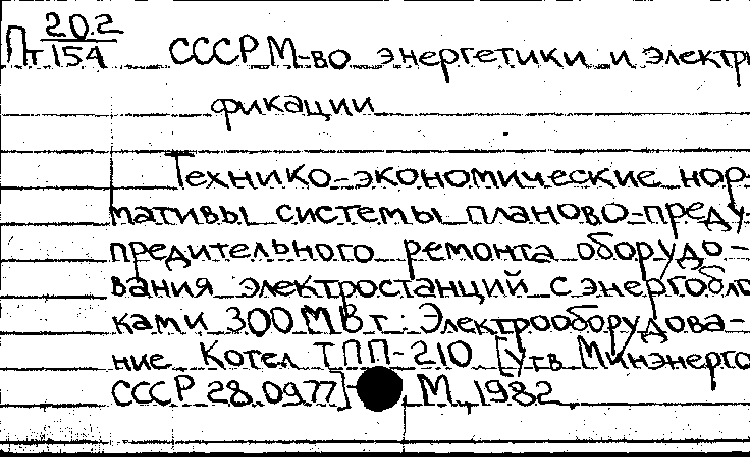 Пт 20.2/154 СССР М-во энергетики и электри
фикации
Технико-экономические нор-
мативы системы планово-преду-
предительного ремонта оборудо-
вания электростанций с энергобло
ками 300 МВт: Электрооборудова-
ние Котел ТПП-210 [Утв Минэнерго
СССР 28.09.77]- М., 1982.